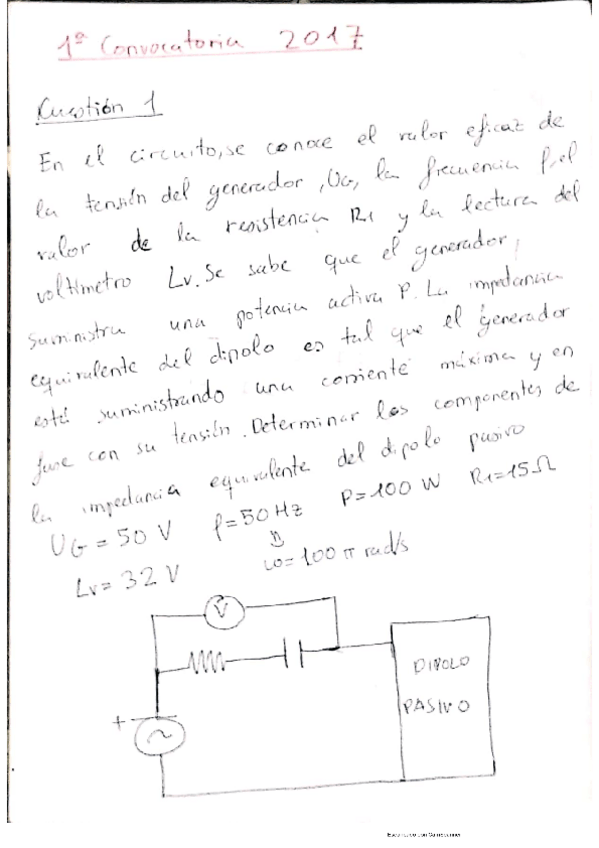 1ª Convocatoria 2017
Cuestión 1
En el circuito, se conoce el valor eficaz de
la tensión del generador, UG, la frecuencia f, el
valor de la resistencia R1 y la lectura del
voltímetro Lv. Se sabe que el generador,
suministra una potencia activa P. La impedancia
equivalente del dipolo es tal que el generador
está suministrando una corriente máxima y en
fase con su tensión. Determinar los componentes de
la impedancia equivalente del dipolo pasivo
UG = 50 V f = 50 Hz P = 100 W R1 = 15 Ω
Lv = 32 V ω = 100 π rad/s
V
DIPOLO
+
PASIVO
Escaneado con CamScanner